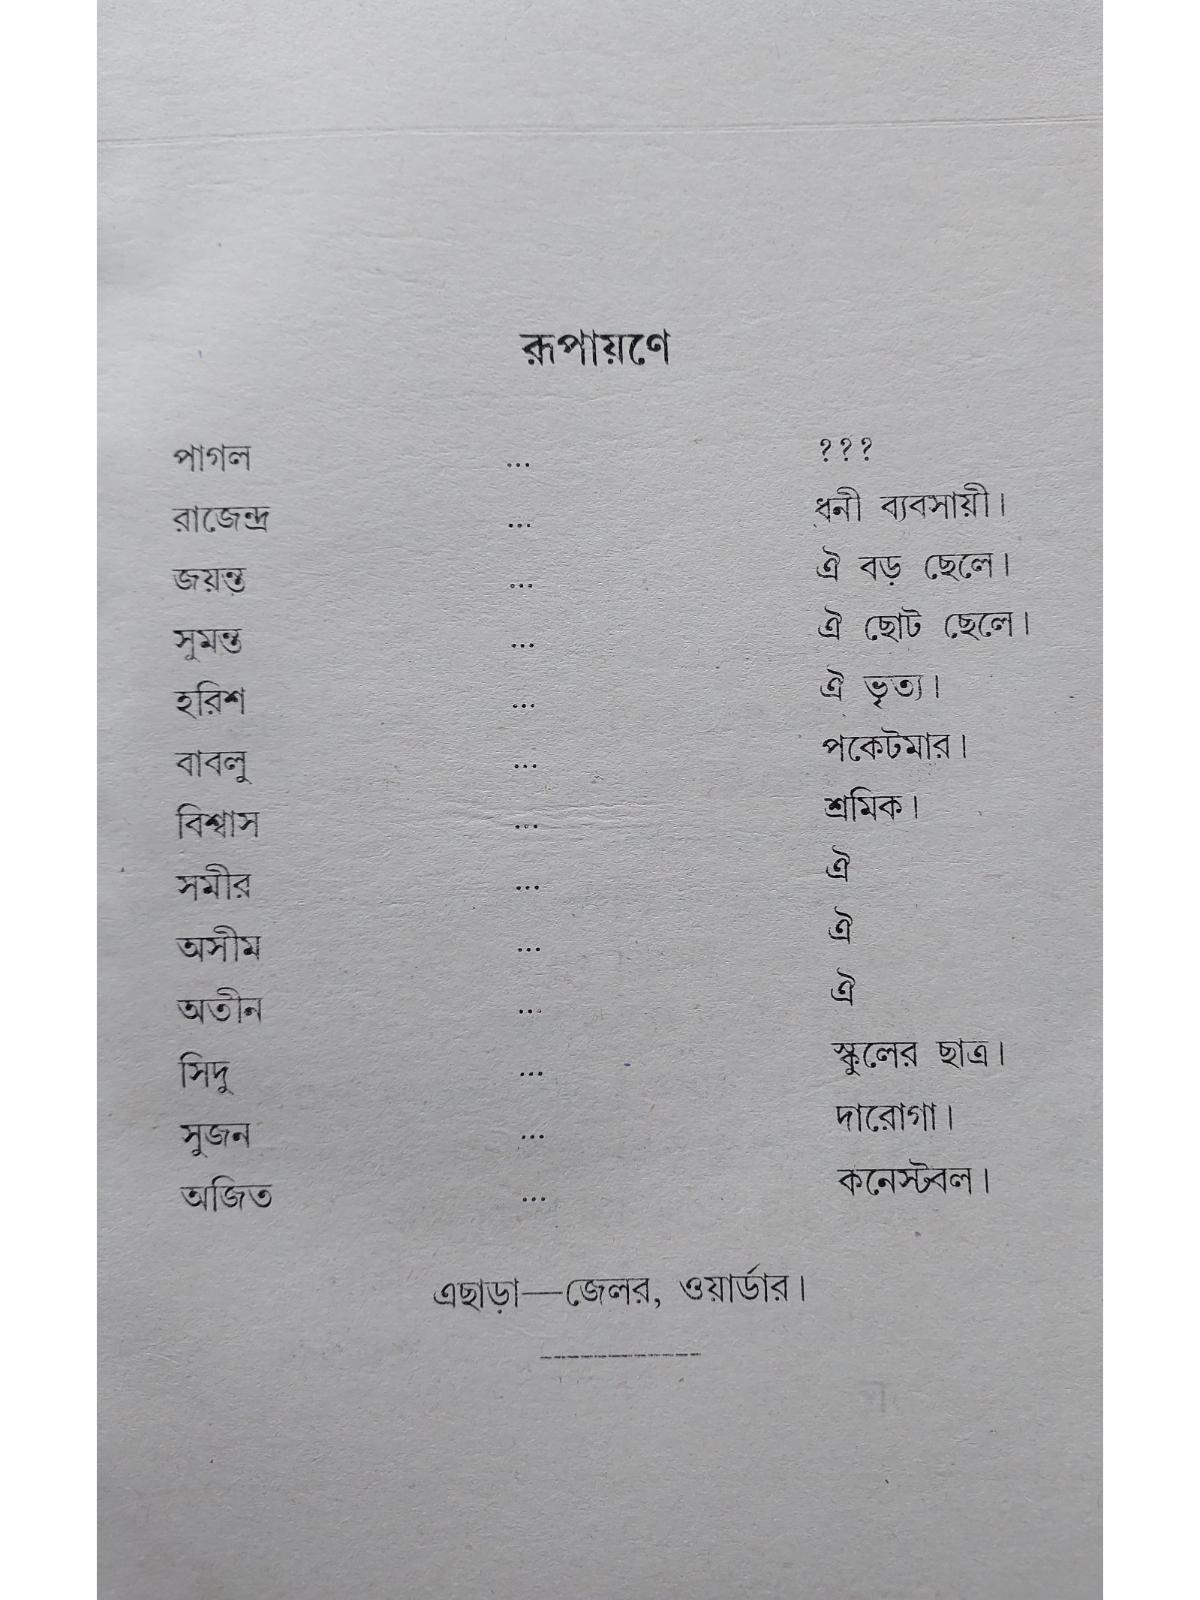 রূপায়ণে
পাগল ... ???
রাজেন্দ্র ... ধনী ব্যবসায়ী।
জয়ন্ত ... ঐ বড় ছেলে।
সুমন্ত ... ঐ ছোট ছেলে।
হরিশ ... ঐ ভৃত্য।
বাবলু ... পকেটমার।
বিশ্বাস ... শ্রমিক।
সমীর ... ঐ
অসীম ... ঐ
অতীন ... ঐ
সিদু ... স্কুলের ছাত্র।
সুজন ... দারোগা।
অজিত ... কনেস্টবল।
এছাড়া—জেলর, ওয়ার্ডার।